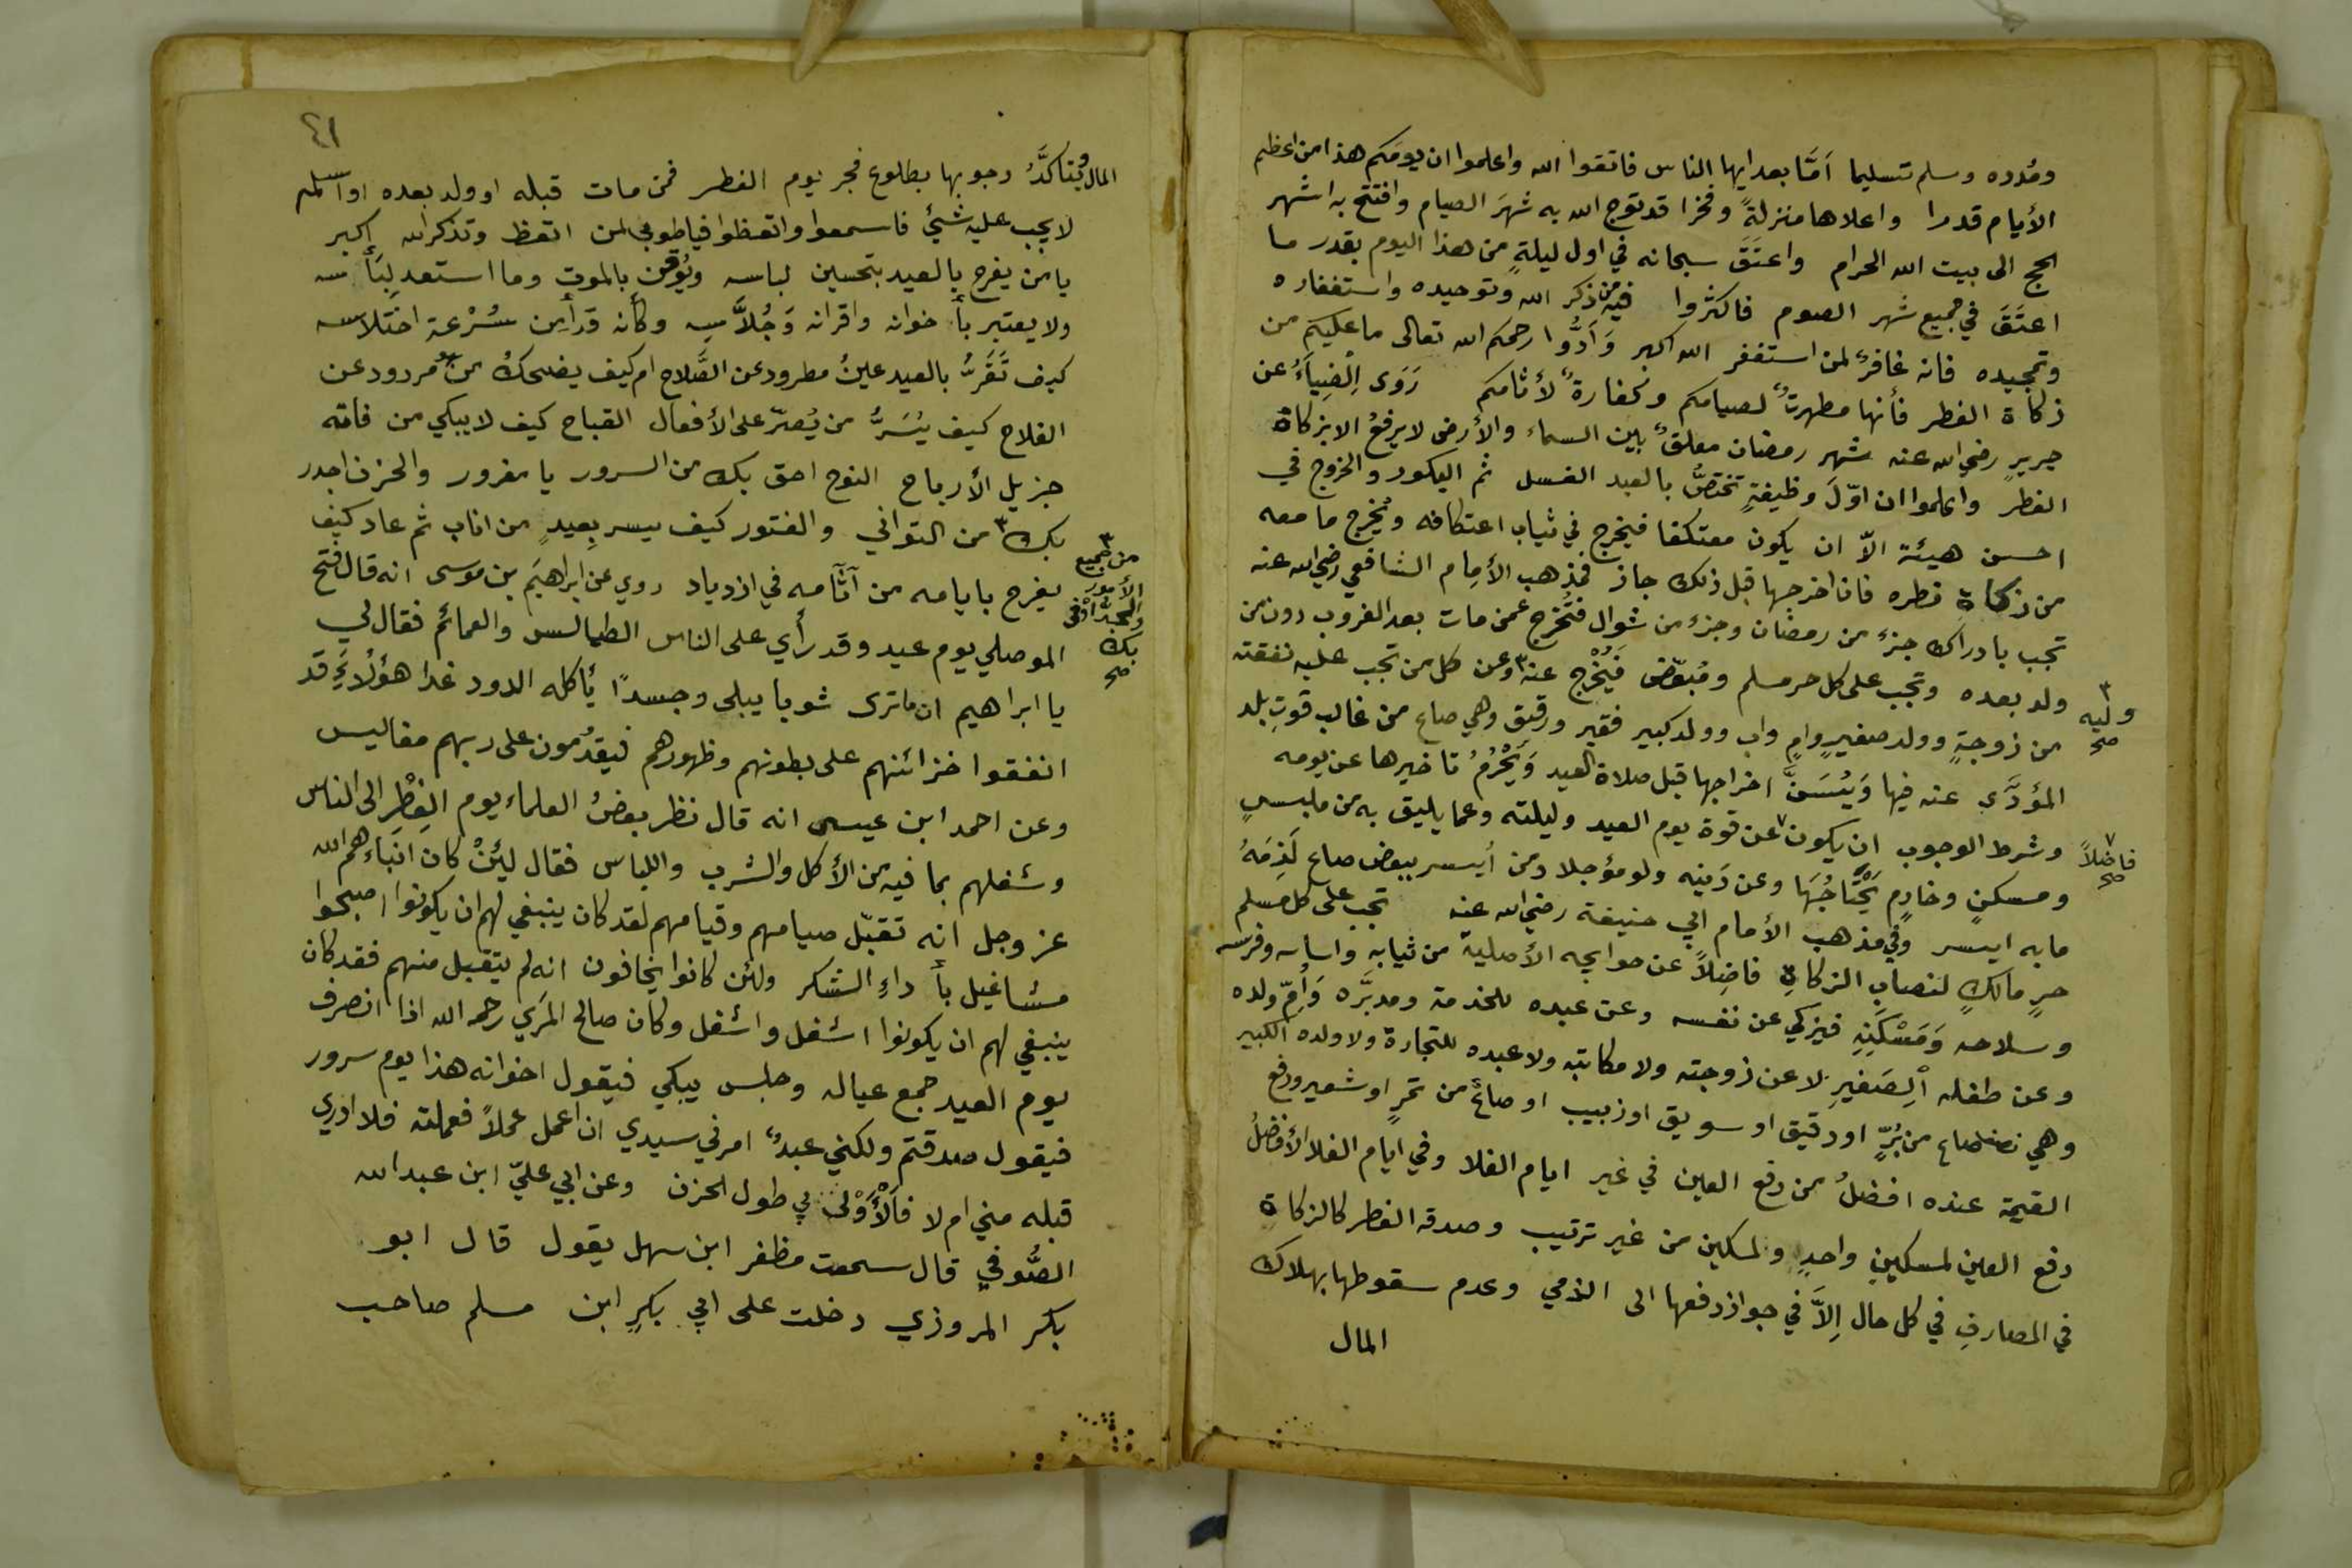 ومُدده وسلم تسليما أمَّا بعد ايها الناس فاتقوا الله واعلموا ان يومكم هذا من اعظم
الأيام قدرا واعلاها منزلةً وفخرا قد توج الله به شهرَ الصيام وافتتح به اشهر
الحج الى بيت الله الحرام واعتَقَ سبحانه في اول ليلةٍ من هذا اليوم بقدر ما
اعتَقَ في جميع شهر الصوم فاكثروا فيه من ذكر الله وتوحيده واستغفاره
وتمجيده فانه غافرٌ لمن استغفر الله اكبر وَأدُّوا رحمكم الله تعالى ما عليكم من
زكاة الفطر فأنها مطهرتٌ لصيامكم وكفارةٌ لأثامكم رَوَى الضِياَءُ عن
جريرٍ رضي الله عنه شهر رمضان معلقٌ بين السماء والأرض لا يرفعُ الا بزكاة
الفطر واعلموا ان اوّلَ وظيفةٍ تختصُّ بالعيد الغسل ثم البكور والخروج في
احسن هيئة الاّ ان يكون معتكفا فيخرج في ثياب اعتكافه ويُخرج ما معه
من زكاة فطره فان اخرجها قبل ذلك جاز فمذهب الأمام الشافعي رضي الله عنه
تجب بادراك جزء من رمضان وجزء من شوال فتُخرج عمن مات بعد الغروب دون من
ولد بعده وتجب على كل حر مسلم ومُبعّض فَيُخْرج عنه ٣ وعن كل من تجب عليه نفقته
٣ وليه صح
من زوجةٍ وولد صغيرٍ وامٍ واب وولد كبير فقير ورقيق وهي صاع من غالب قوتِ بلد
المؤدَّي عنه فيها وَيُسَنَّ اخراجها قبل صلاة العيد وَيَحْرُمُ تاخيرها عن يومه
وشرط الوجوب ان يكون ٧ عن قوة يوم العيد وليلته وعما يليق به من ملبسٍ
٧ فاضلاً صح
ومسكنٍ وخادٍم يَحْتَاجُهَا وعن دَينه ولو مؤجلا ومن أيسر ببعض صاع لَزِمَهُ
ما به ايسر وفي مذهب الأمام ابي حنيفة رضي الله عنه تجب على كل مسلم
حرٍ مالكٍ لنصابِ الزكاةِ فاضِلاً عن حوايجه الأصلية من ثيابه واساسه وفرسه
وسلاحه وَمَسْكَنِهِ فيزكي عن نفسه وعن عبده للخدمة ومدبَّره وَأُمّ ولده
وعن طفله الصَغيرِ لا عن زوجته ولا مكاتبه ولا عبده للتجارة ولا ولده الكبير
وهي نصف صاع من بُرٍّ او دقيق او سويق او زبيب او صاعٌ من تمرٍ او شعير ودفع
القيمة عنده افضلُ من دفع العين في غير ايام الغلا وفي ايام الغلا الأفضلُ
دفع العين لمسكينٍ واحدٍ ولمسكين من غير ترتيب وصدقه الفطر كالزكاةِ
في المصارفِ في كل حال إلاَّ في جواز دفعها الى الذمي وعدم سقوطها بهلاك
المال
٤١
المال ويتأكَّدُ وجوبها بطلوع فجر يوم الفطر فمن مات قبله او ولد بعده او اسلم
لا يجب عليه شئٌ فاسمعوا واتعظوا فيا طوبى لمن اتعظ وتذكر الله اكبر
يا من يفرح بالعيد بتحسين لباسه ويُوقِن بالموت وما استعد لِبَأسه
ولا يعتبر بأ خوانه واقرانه وَجُلاَّسِه وكأنه قد أَمِن سُرْعة اختلاسه
كيف تَقَرُّ بالعيد عينُ مطرود عن الصَّلاح ام كيف يضحك سنٌّ مردود عن
الفلاح كيف يُسَرُّ من يُصرّ على الأفعال القباح كيف لا يبكي من فاته
جزيل الأرباح النوح احق بك من السرور يا مغرور والحزن اجدر
بك ٣ من التواني والفتور كيف يسر بِعيدٍ من اناب ثم عاد كيف
٣ من جميع الأمور والجدُّ اوفى بك صح
يفرح بايامه من آثآمه في ازدياد روي عن ابراهيَم بن موسى انه قال فتح
الموصلي يوم عيد وقد رأي على الناس الطيالس والعمائم فقال لي
يا ابراهيم ان ما ترى ثوبا يبلى وجسدًا يأكله الدود غدا هؤلآءِ قد
انفقوا خزائنهم على بطونهم وظهورهم فيقدُمون على ربهم مفاليس
وعن احمد ابن عيسى انه قال نظر بعضُ العلماء يوم الفِطْر الى الناس
وشغلهم بما فيه من الأكل والشرب واللباس فقال ليئنْ كان انباءهم الله
عز وجل انه تقبّل صيامهم وقيامهم لقد كان ينبغي لهم ان يكونوا اصبحوا
مشاغيل بأ داءِ الشكر ولئن كانوا يخافون انه لم يتقبل منهم فقد كان
ينبغي لهم ان يكونوا اشغل واشغل وكان صالح المَري رحمه الله اذا انصرف
يوم العيد جمع عياله وجلس يبكي فيقول اخوانه هذا يوم سرور
فيقول صدقتم ولكني عبدٌ امرني سيدي ان اعمل عملاً فعملته فلا ادري
قبله مني ام لا فالْأَوْلى بي طول الحزن وعن ابي عليّ ابن عبد الله
الصُّوفي قال سمعت مظفر ابن سهل يقول قال ابو
بكر المروزي دخلت على ابي بكرٍ ابن مسلم صاحب